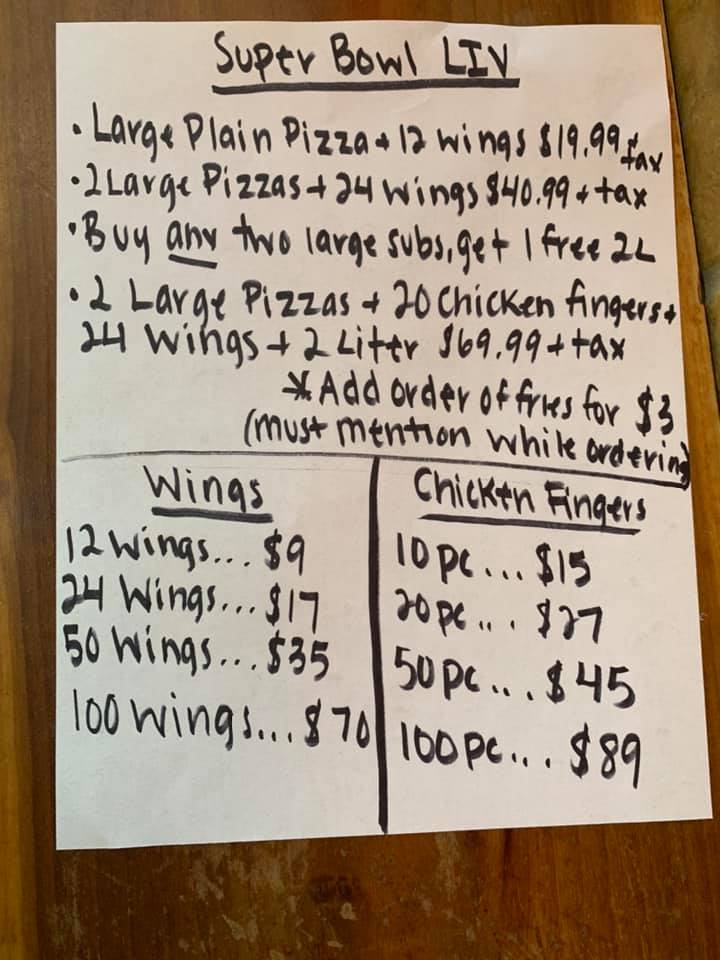 Super Bowl LIV
• Large Plain Pizza + 12 wings $19.99 + tax
• 2 Large Pizzas + 24 wings $40.99 + tax
• Buy any two large subs, get 1 free 2L
• 2 Large Pizzas + 20 Chicken fingers +
24 Wings + 2 Liter $69.99 + tax
* Add order of fries for $3
(must mention while ordering)
Wings
12 Wings... $9
24 Wings... $17
50 Wings... $35
100 Wings... $70
Chicken Fingers
10 pc... $15
20 pc... $27
50 pc... $45
100 pc... $89